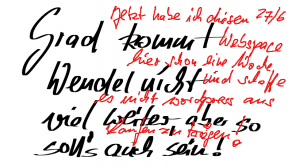 Jetzt habe ich diesen 27/6
Webspace
hier schon eine Woche
und schaffe
es nicht wordpress ans
Laufen zu kriegen.
Grad kommt
Wendel nicht
viel weiter, aber so
soll's auch sein!